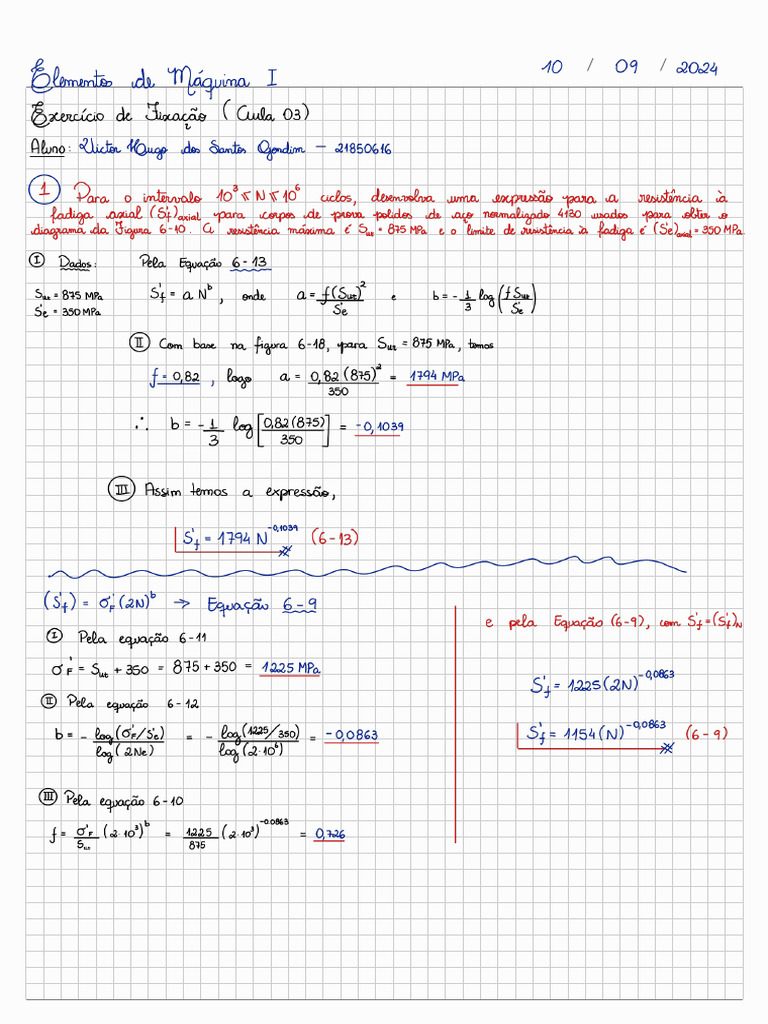 Elementos de Máquina I 10 / 09 / 2024
Exercício de Fixação (Aula 03)
Aluno: Victor Hugo dos Santos Gondim – 21850616
1 Para o intervalo 10³ ≤ N ≤ 10⁶ ciclos, desenvolva uma expressão para a resistência à
fadiga axial (S'f)axial para corpos de prova polidos de aço normalizado 4130 usados para obter o
diagrama da Figura 6-10. A resistência máxima é Sut = 875 MPa e o limite de resistência à fadiga é (Se)axial = 350 MPa
I Dados: Pela Equação 6-13
Sut = 875 MPa S'f = a N^b, onde a = f(Sut)²/S'e e b = -1/3 log(f Sut/S'e)
S'e = 350 MPa
II Com base na figura 6-18, para Sut = 875 MPa, temos
f = 0,82, logo a = 0,82(875)²/350 = 1794 MPa
∴ b = -1/3 log[0,82(875)/350] = -0,1039
III Assim temos a expressão,
S'f = 1794 N^-0,1039 (6-13)
(S'f) = σ'F(2N)^b → Equação 6-9
I Pela equação 6-11
σ'F = Sut + 350 = 875 + 350 = 1225 MPa
II Pela equação 6-12
b = - log(σ'F/S'e)/log(2Ne) = - log(1225/350)/log(2·10⁶) = -0,0863
III Pela equação 6-10
f = σ'F/Sut (2·10³)^b = 1225/875 (2·10³)^-0.0863 = 0,726
e pela Equação (6-9), com S'f = (S'f)N
S'f = 1225(2N)^-0,0863
S'f = 1154(N)^-0,0863 (6-9)